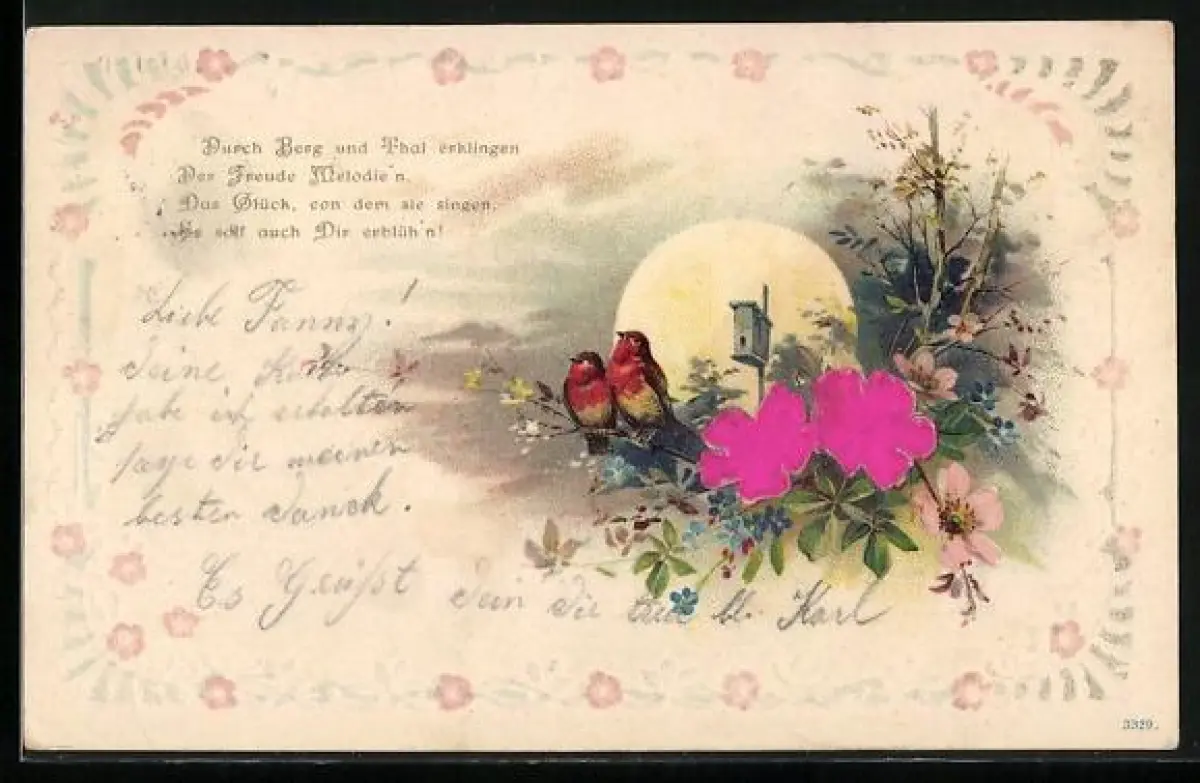 Durch Berg und Thal erklingen
Der Freude Melodie'n.
Das Glück, von dem sie singen,
Es soll auch Dir erblüh'n!
Liebe Fanny!
deine Karte
habe ich erhalten
sage dir meinen
besten Danck.
Es Grüßt dein dir Karl
3329.